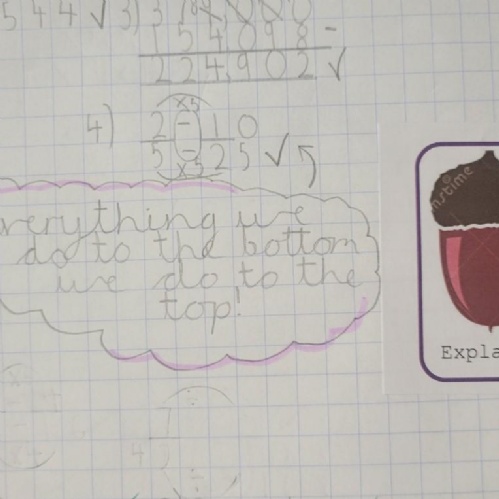 544 ✓ 3) 3
154098 -
224,902 ✓
×5
4) 2 = 10
5 25 ✓
×5
verything we
do to the bottom
we do to the
top!
nstime
Expla